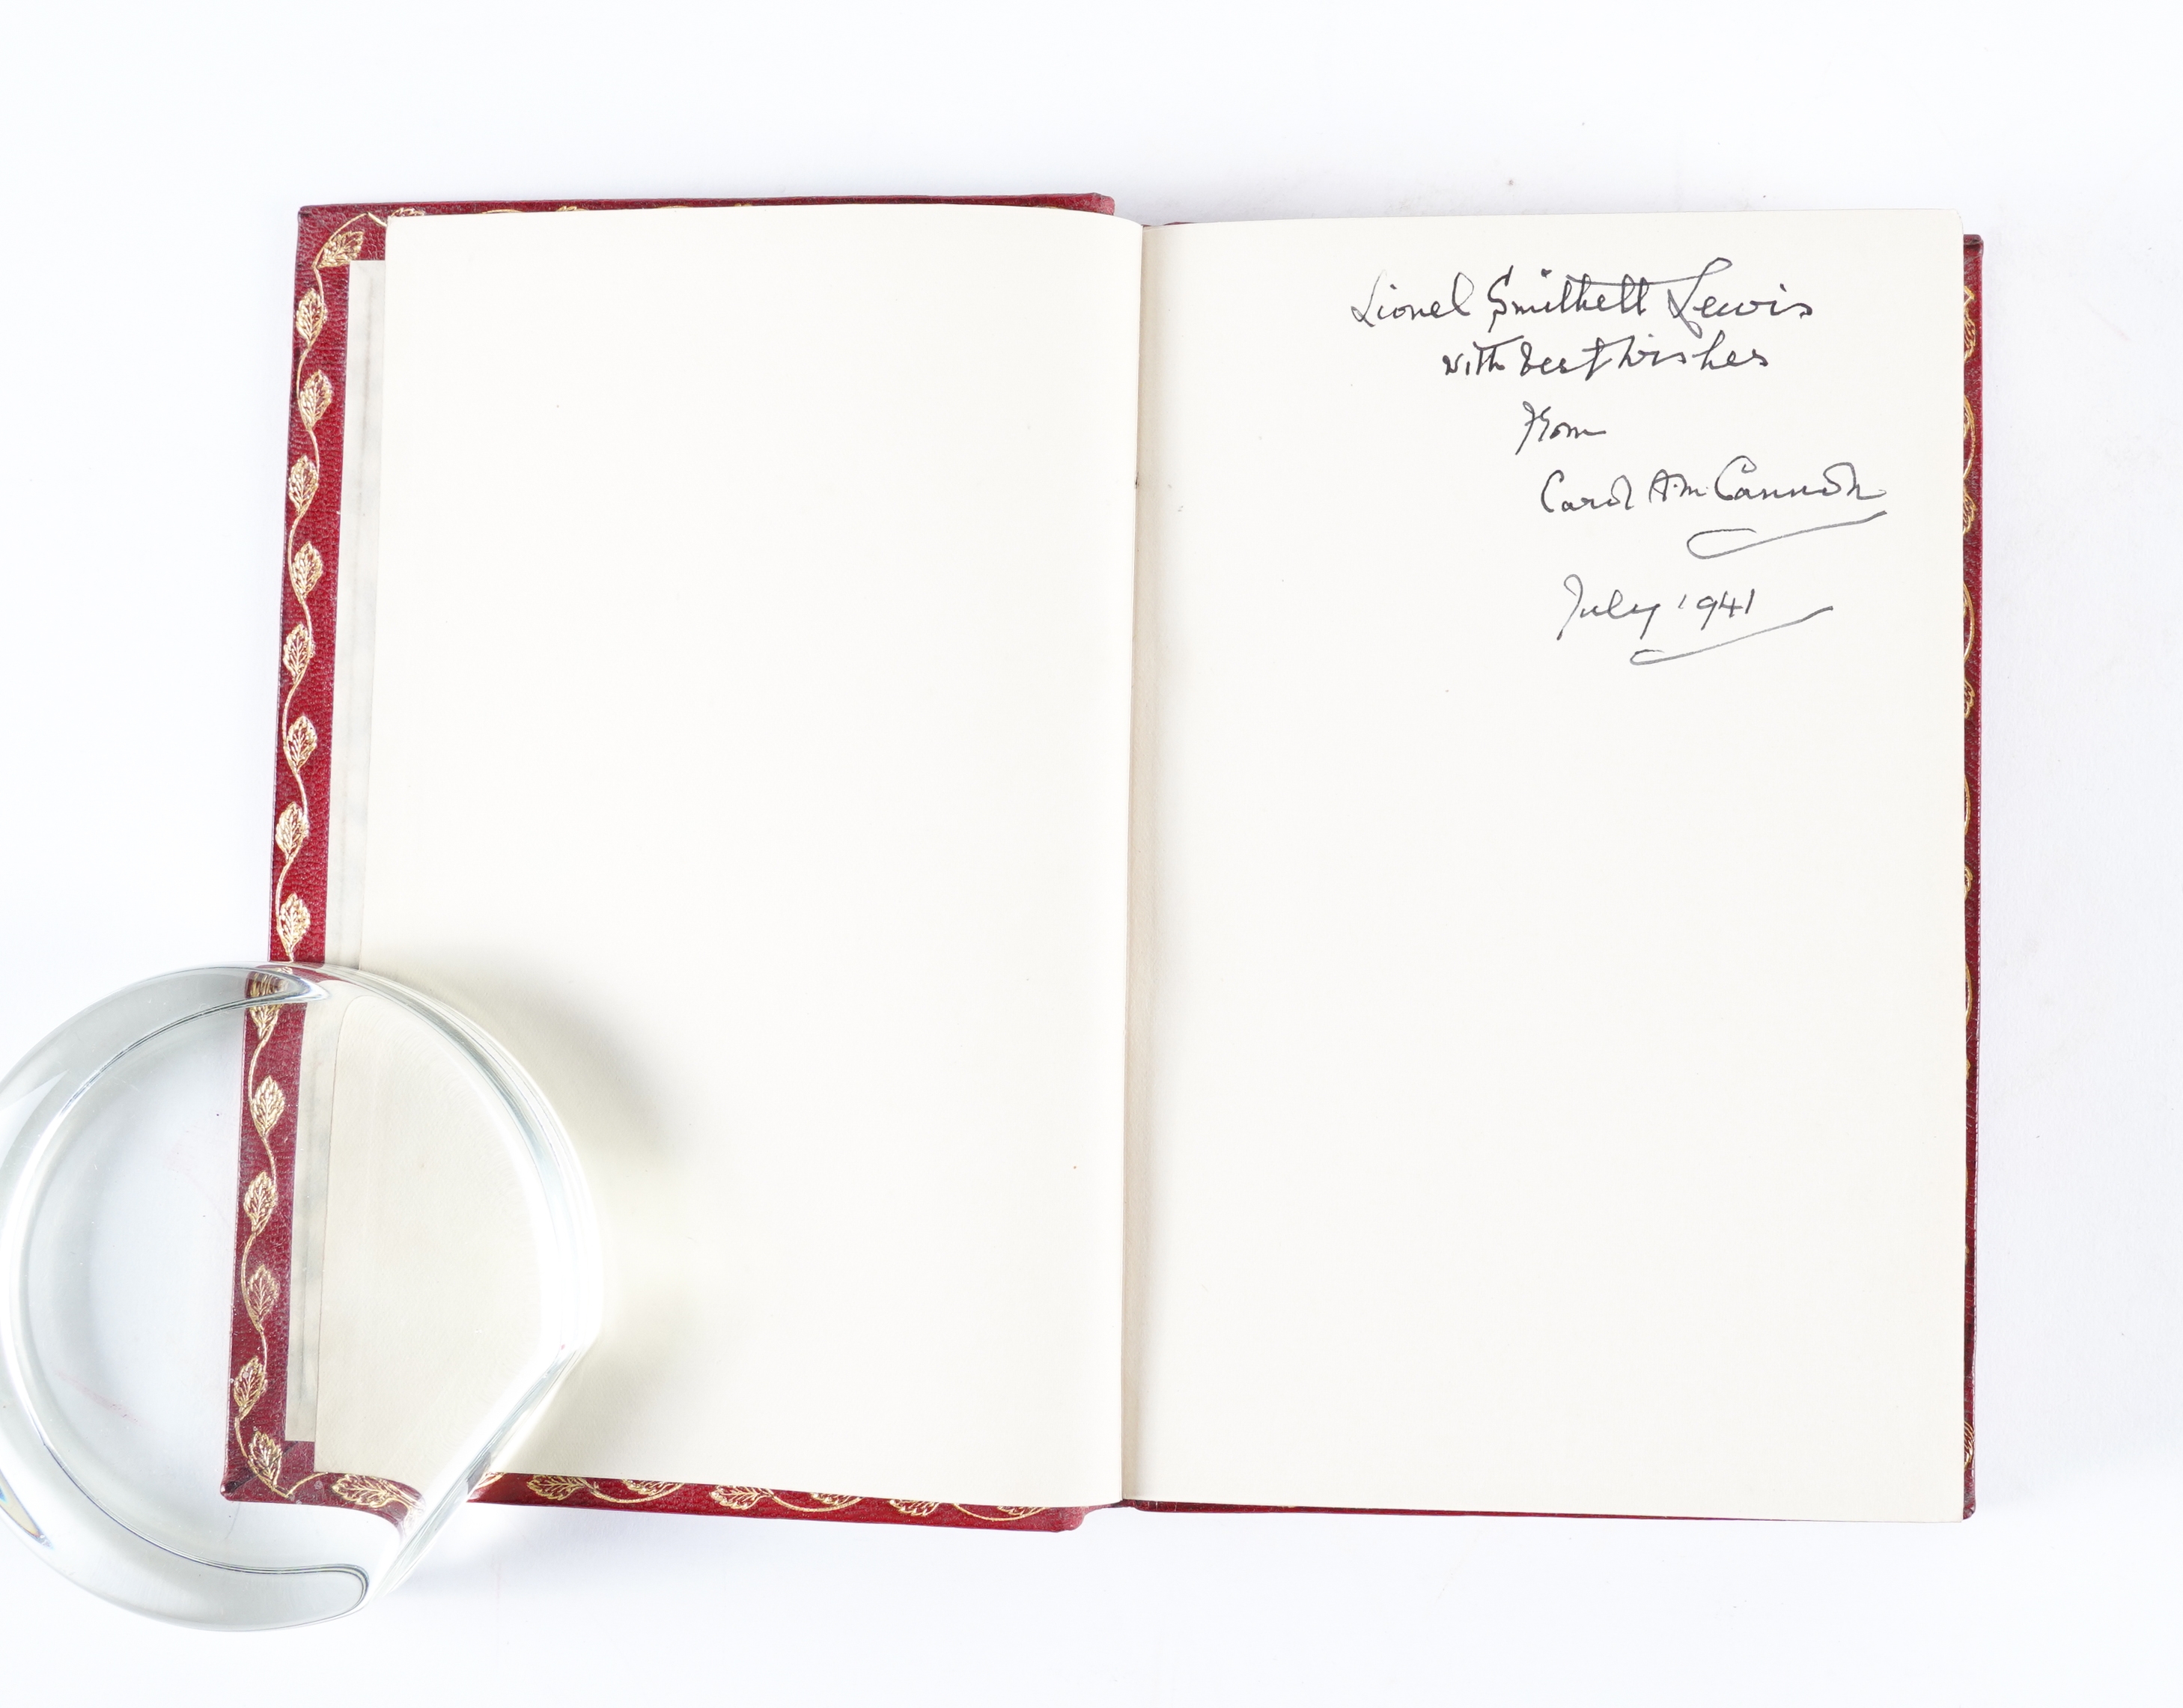 Lionel Smithett Lewis
with best wishes
from
Carol A.M. Cannon
July 1941